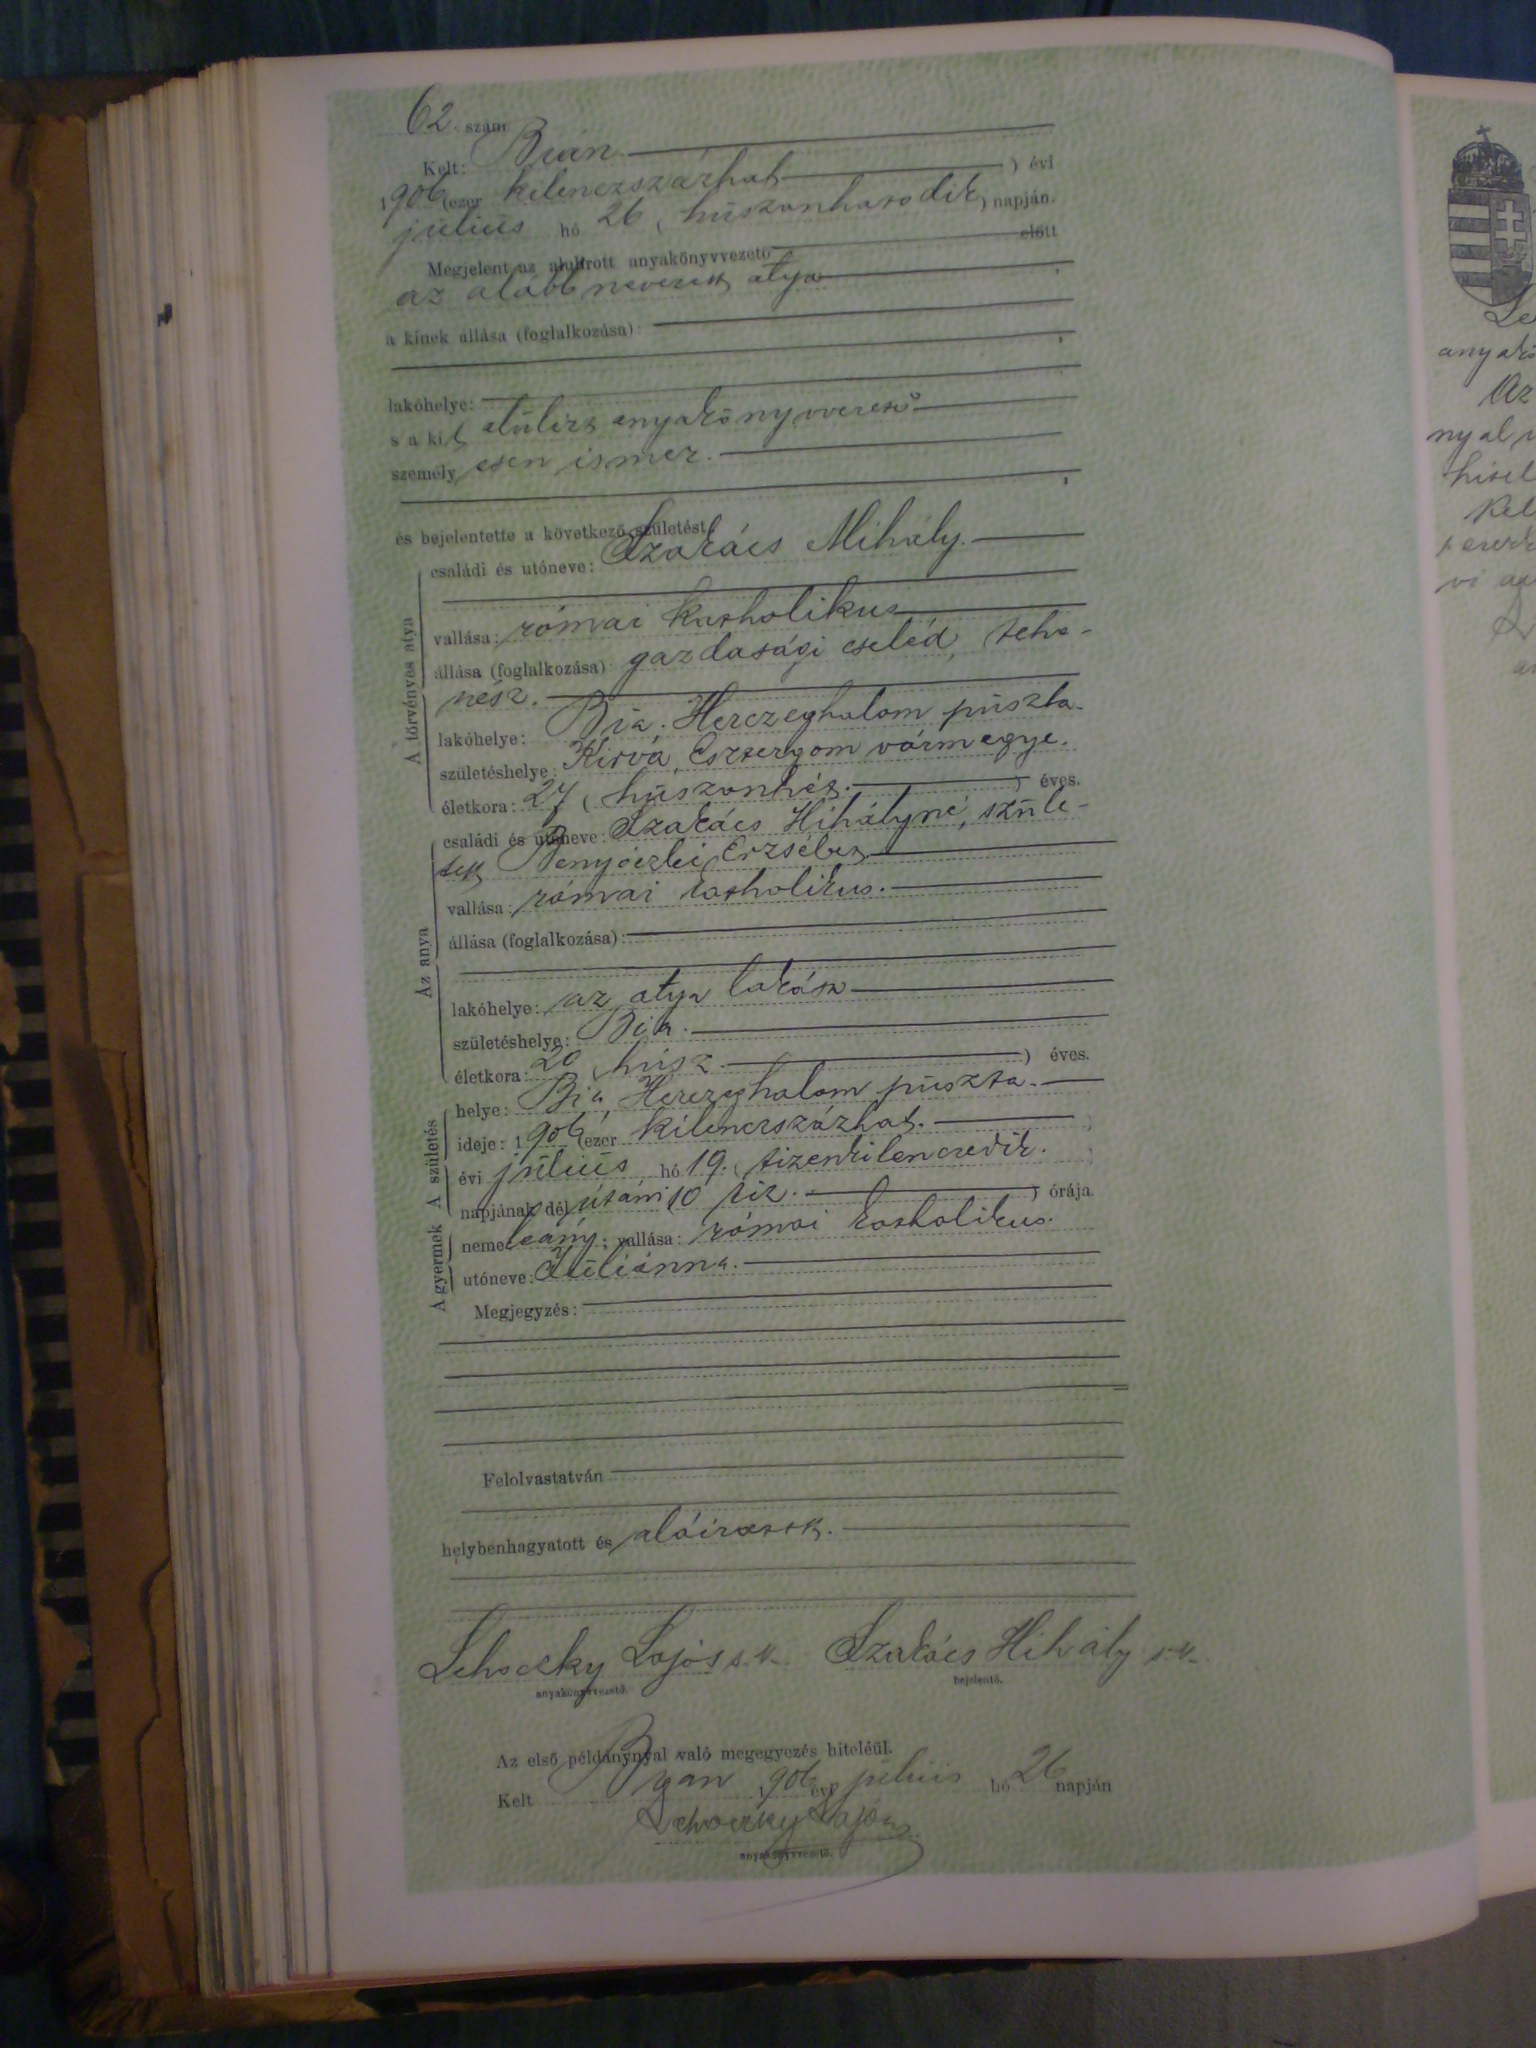 62. szám
Kelt: Bián
1906 (ezer kilenczszázhat ) évi
julius hó 26 (huszonhatodik) napján.
Megjelent az alulírott anyakönyvvezető előtt
az alább nevezett atya
a kinek állása (foglalkozása):
lakóhelye:
s a kit alulirt anyakönyvvezető
személyesen ismer.
és bejelentette a következő születést
A törvényes atya
családi és utóneve: Szakács Mihály.
vallása: római katholikus
állása (foglalkozása): gazdasági cseléd, tehe-
nész.
lakóhelye: Bia. Herczeghalom puszta.
születéshelye: Kirva, Esztergom vármegye.
életkora: 27 (huszonhét. ) éves.
Az anya
családi és utóneve: Szakács Mihályné, szüle-
tett Erzsébet
vallása: római katholikus.
állása (foglalkozása):
lakóhelye: az atya lakása
születéshelye: Bia.
életkora: 20 (húsz. ) éves.
A születés
helye: Bia, Herczeghalom puszta.
ideje: 1906 (ezer kilenczszázhat.
évi julius hó 19. (tizenkilenczedik.
napjának dél utáni 10 tíz. ) órája.
A gyermek
neme: leány; vallása: római katholikus.
utóneve: Juliánna.
Megjegyzés:
Felolvastatván
helybenhagyatott és aláiratott.
Lehoczky Lajos s.k. Szakács Mihály s.k.
anyakönyvvezető. bejelentő.
Az első példánynyal való megegyezés hiteléül.
Kelt Byan 1906 évi julius hó 26 napján
Lehoczky Lajos
anyakönyvvezető.
anyakö
Az
nyal
hitel
Kel